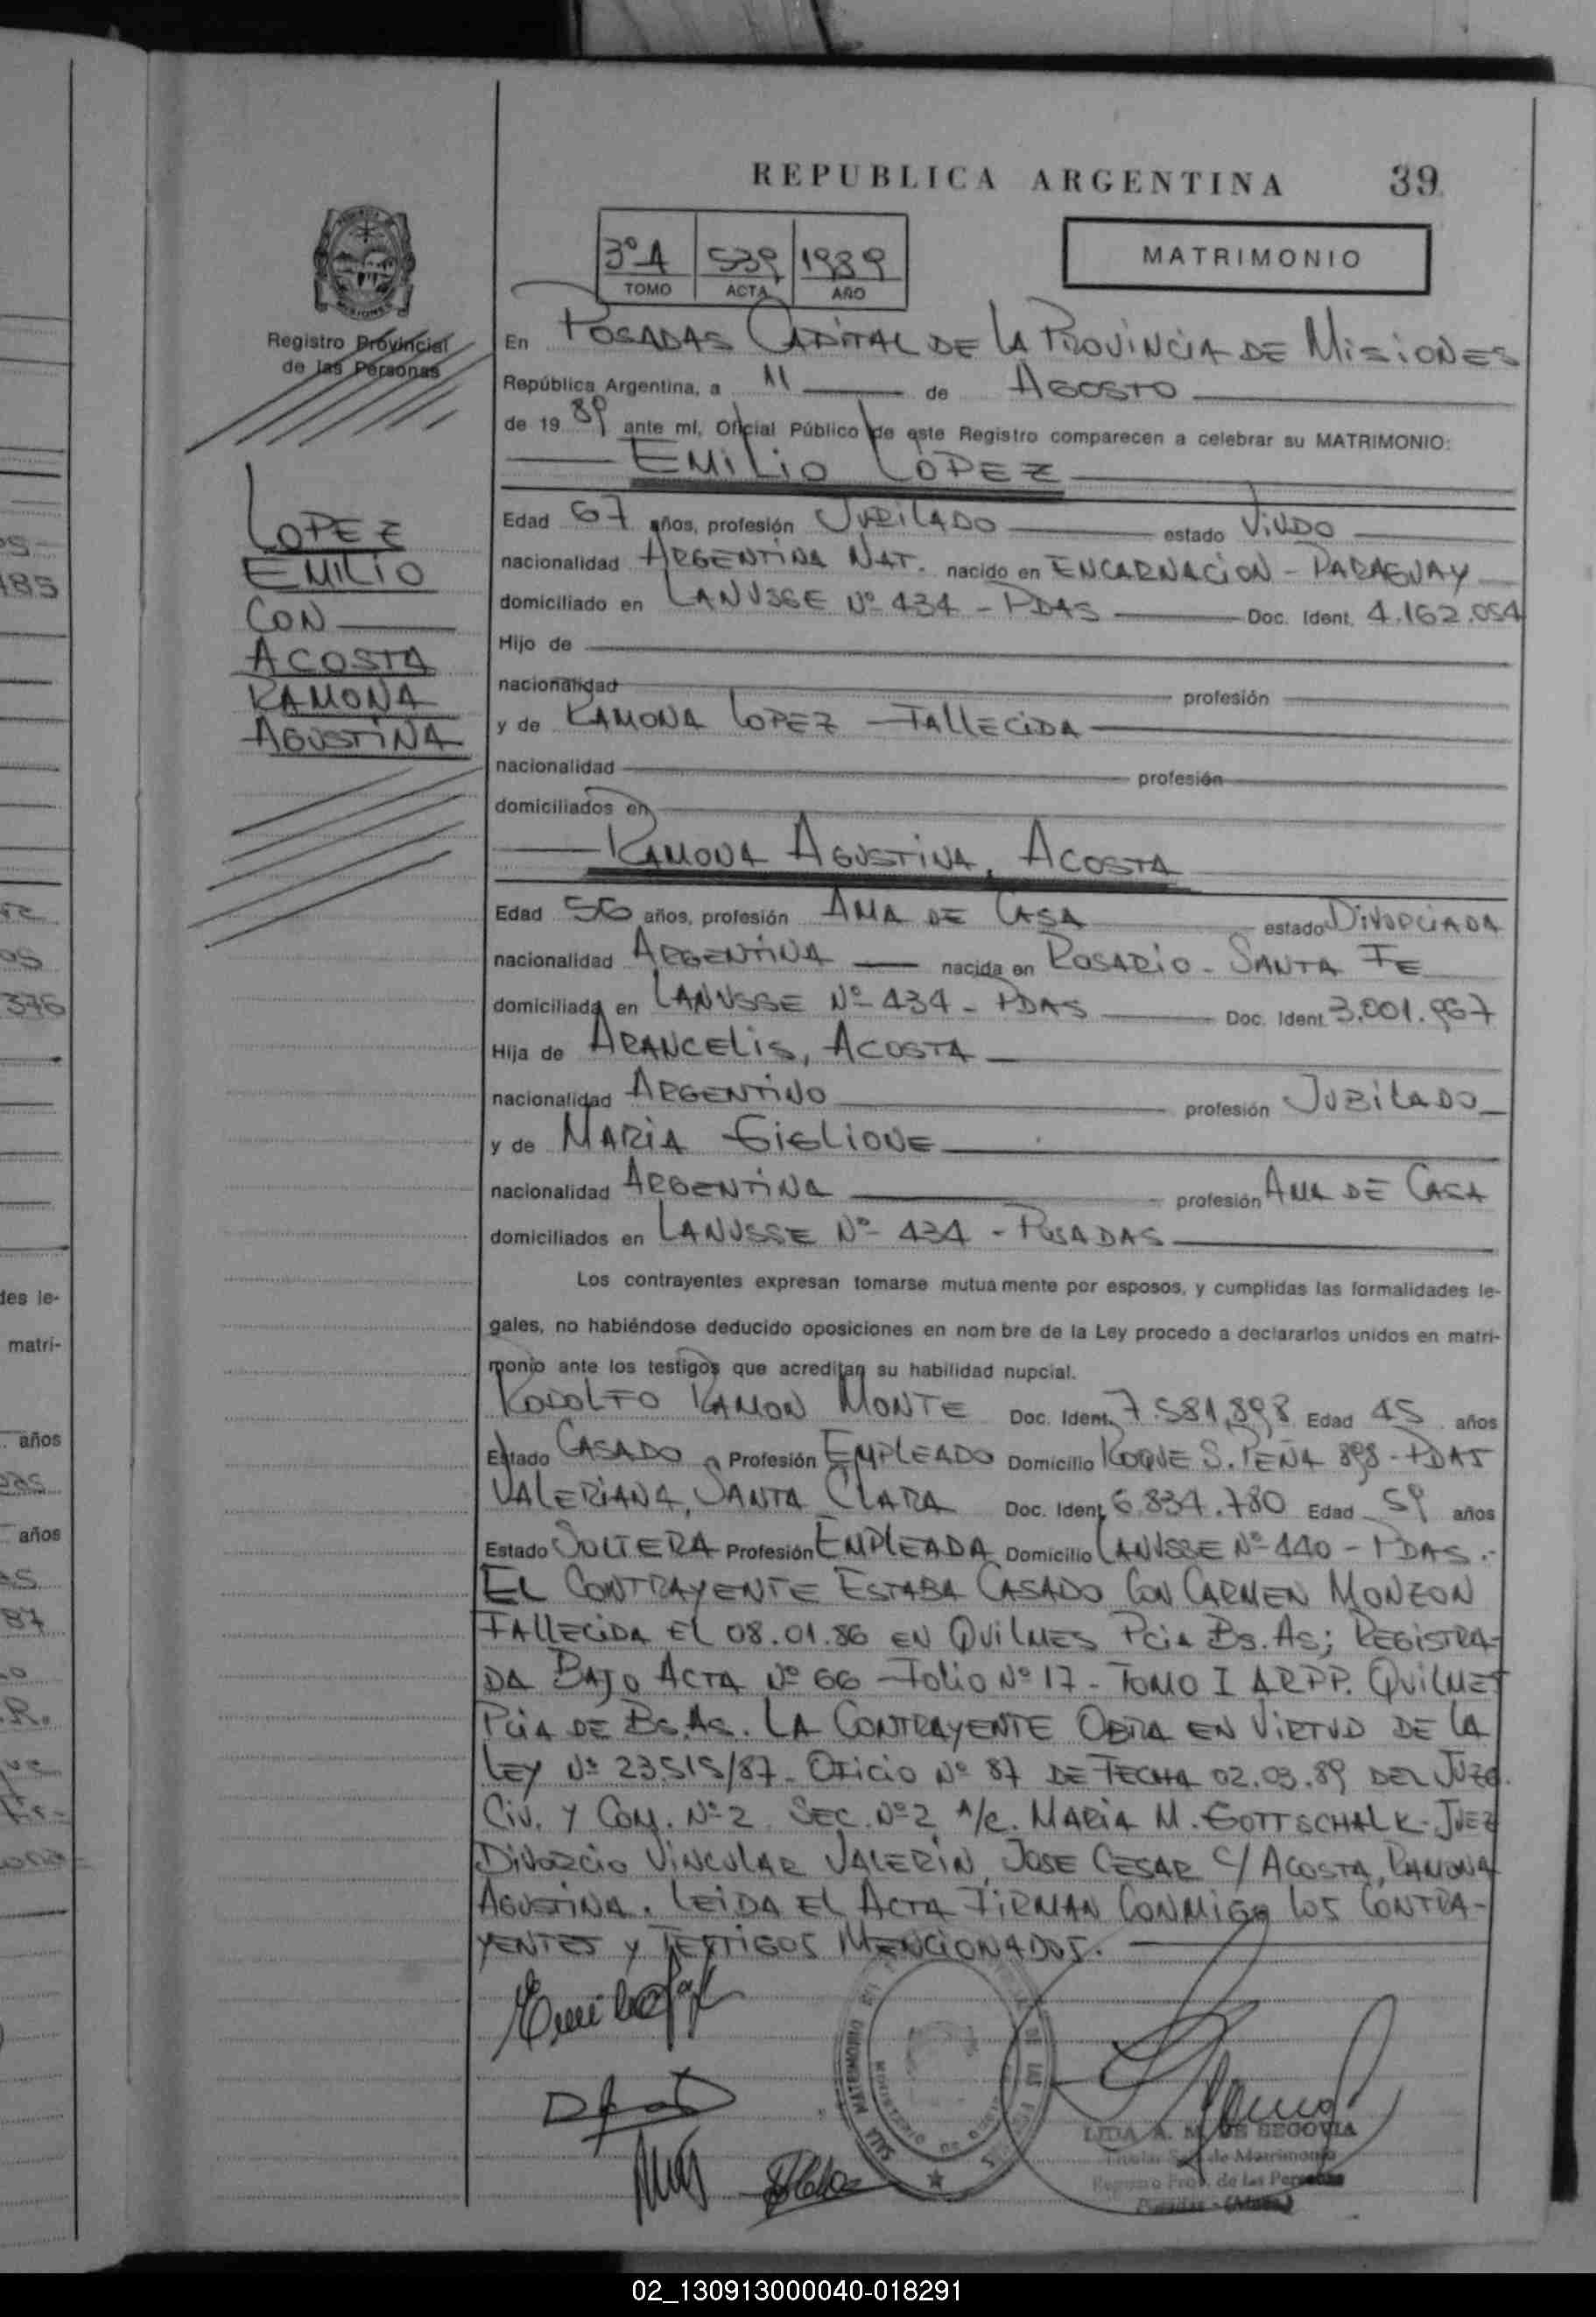 REPUBLICA ARGENTINA 39
MATRIMONIO
3º A 539 1989
TOMO ACTA AÑO
Registro Provincial
de las Personas
LOPEZ
EMILIO
CON
ACOSTA
RAMONA
AGUSTINA
En POSADAS CAPITAL DE LA PROVINCIA DE MISIONES
República Argentina, a 11 de AGOSTO
de 19 89 ante mí, Oficial Público de este Registro comparecen a celebrar su MATRIMONIO:
EMILIO LOPEZ
Edad 67 años, profesión JUBILADO estado VIUDO
nacionalidad ARGENTINA NAT. nacido en ENCARNACION - PARAGUAY
domiciliado en LANUSSE Nº 434 - PDAS Doc. Ident. 4.162.054
Hijo de
nacionalidad profesión
y de RAMONA LOPEZ - FALLECIDA
nacionalidad profesión
domiciliados en
RAMONA AGUSTINA, ACOSTA
Edad 56 años, profesión AMA DE CASA estado DIVORCIADA
nacionalidad ARGENTINA nacida en ROSARIO - SANTA FE
domiciliada en LANUSSE Nº 434 - PDAS Doc. Ident. 3.001.967
Hija de ARANCELIS, ACOSTA
nacionalidad ARGENTINO profesión JUBILADO
y de MARIA GIGLIONE
nacionalidad ARGENTINA profesión AMA DE CASA
domiciliados en LANUSSE Nº 434 - POSADAS
Los contrayentes expresan tomarse mutua mente por esposos, y cumplidas las formalidades le-
gales, no habiéndose deducido oposiciones en nom bre de la Ley procedo a declararlos unidos en matri-
monio ante los testigos que acreditan su habilidad nupcial.
RODOLFO RAMON MONTE Doc. Ident. 7.581.898 Edad 45 años
Estado CASADO Profesión EMPLEADO Domicilio ROQUE S. PEÑA 898 - PDAS
VALERIANA, SANTA CLARA Doc. Ident. 6.834.780 Edad 59 años
Estado SOLTERA Profesión EMPLEADA Domicilio LANUSSE Nº 440 - PDAS.-
EL CONTRAYENTE ESTABA CASADO CON CARMEN MONZON
FALLECIDA EL 08.01.86 EN QUILMES PCIA BS. AS; REGISTRA-
DA BAJO ACTA Nº 66 - FOLIO Nº 17 - TOMO I ARPP. QUILMES
PCIA DE BS.AS. LA CONTRAYENTE OBRA EN VIRTUD DE LA
LEY Nº 23.515/87. OFICIO Nº 87 DE FECHA 02.03.89 DEL JUZG.
CIV. Y COM. Nº 2 SEC. Nº 2 A/C. MARIA M. GOTTSCHALK - JUEZ
DIVORCIO VINCULAR VALERIN, JOSE CESAR C/ ACOSTA, RAMONA
AGUSTINA. LEIDA EL ACTA FIRMAN CONMIGO LOS CONTRA-
YENTES Y TESTIGOS MENCIONADOS.
LIDA A. M. DE SEGOVIA
Titular de Matrimonio
Registro Prov. de las Personas
Posadas
02_130913000040-018291